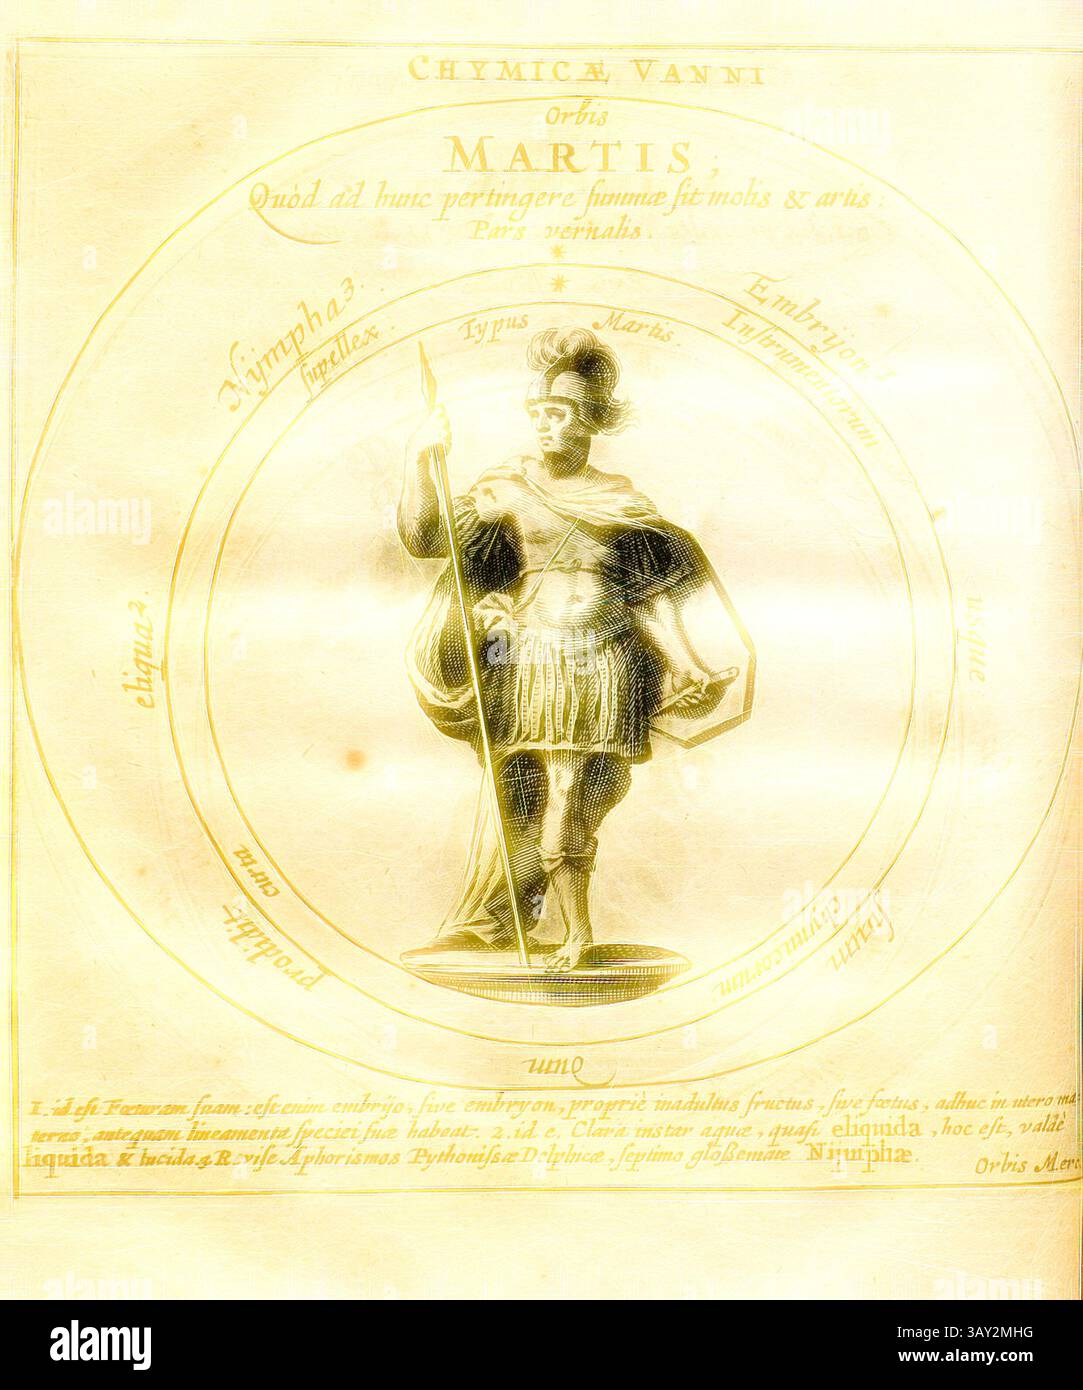 CHYMICÆ VANNI
Orbis
MARTIS,
Quòd ad hunc pertingere summæ sit molis & artis:
Pars vernalis.
Nijmpha 3.
Embrijon 1
supellex.
Typus Martis.
Instrumentorum
eliqua 2.
usque
prodidit
curta
suam
chymicorum
uno
1. id est Fœturam suam: est enim embrijo, sive embryon, propriè inadultus fructus, sive fœtus, adhuc in utero ma=
terno, antequam lineamenta speciei suæ habeat. 2. id e. Clara instar aquæ, quasi eliquida, hoc est, valdè
liquida & lucida. 3 R. vise Aphorismos Pythonissæ Delphicæ, septimo glossemate Nijmphæ.
Orbis Merc
alamy
Image ID: 3AY2MHG
www.alamy.com